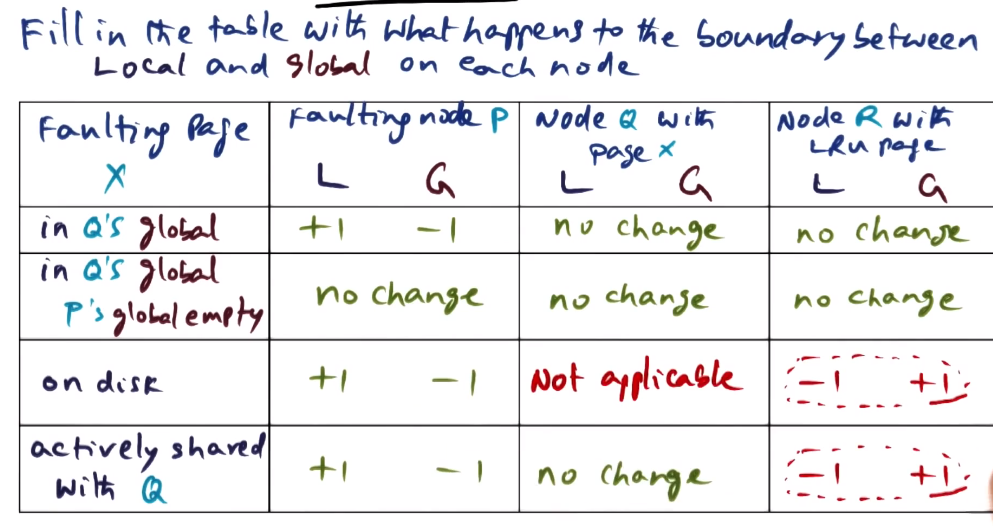 Fill in the table with what happens to the boundary between
Local and global on each node
Faulting Page
X
Faulting node P
L G
Node Q with
page X
L G
Node R with
LRU page
L G
in Q's global
+1 -1
no change
no change
in Q's global
P's global empty
no change
no change
no change
on disk
+1 -1
Not applicable
-1 +1
actively shared
with Q
+1 -1
no change
-1 +1